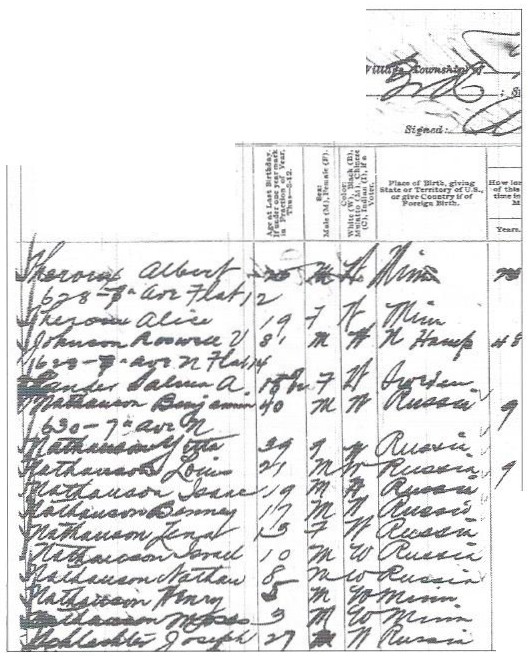 Village, Township of
Signed:
Age at Last Birthday. If under one year mark in Fraction of Year, Thus—5-12.
Sex: Male (M), Female (F).
Color: White (W), Black (B), Mulatto (M), Chinese (C), Indian (I), if a Voter.
Place of Birth, giving State or Territory of U.S., or give Country if of Foreign Birth.
How lon of this time in M
Years.
Theroux Albert M W Minn
628-7th Ave Flat 12
Theroux Alice 19 F W Minn
Johnson Roswell V 81 M W N Hamp 48
628-7th Ave N Flat 14
Salma A. F W Sweden
Nathanson Benjamin 40 M W Russia 9
630-7th Ave N
Nathanson 39 W Russia
Nathanson Louis 21 M W Russia 9
Nathanson Isaac 19 M W Russia
Nathanson Benney 17 M W Russia
Nathanson Lena 15 F W Russia
Nathanson Israel 10 M W Russia
Nathanson Nathan 8 M W Russia
Nathanson Henry 5 M W Minn
Nathanson Moses 3 M W Minn
Schlachter Joseph 27 M W Russia